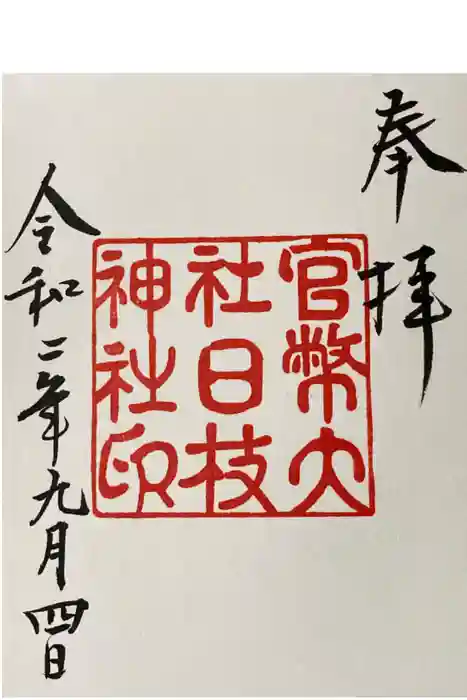 奉拝
官幣大
社日枝
神社印
令和二年九月四日